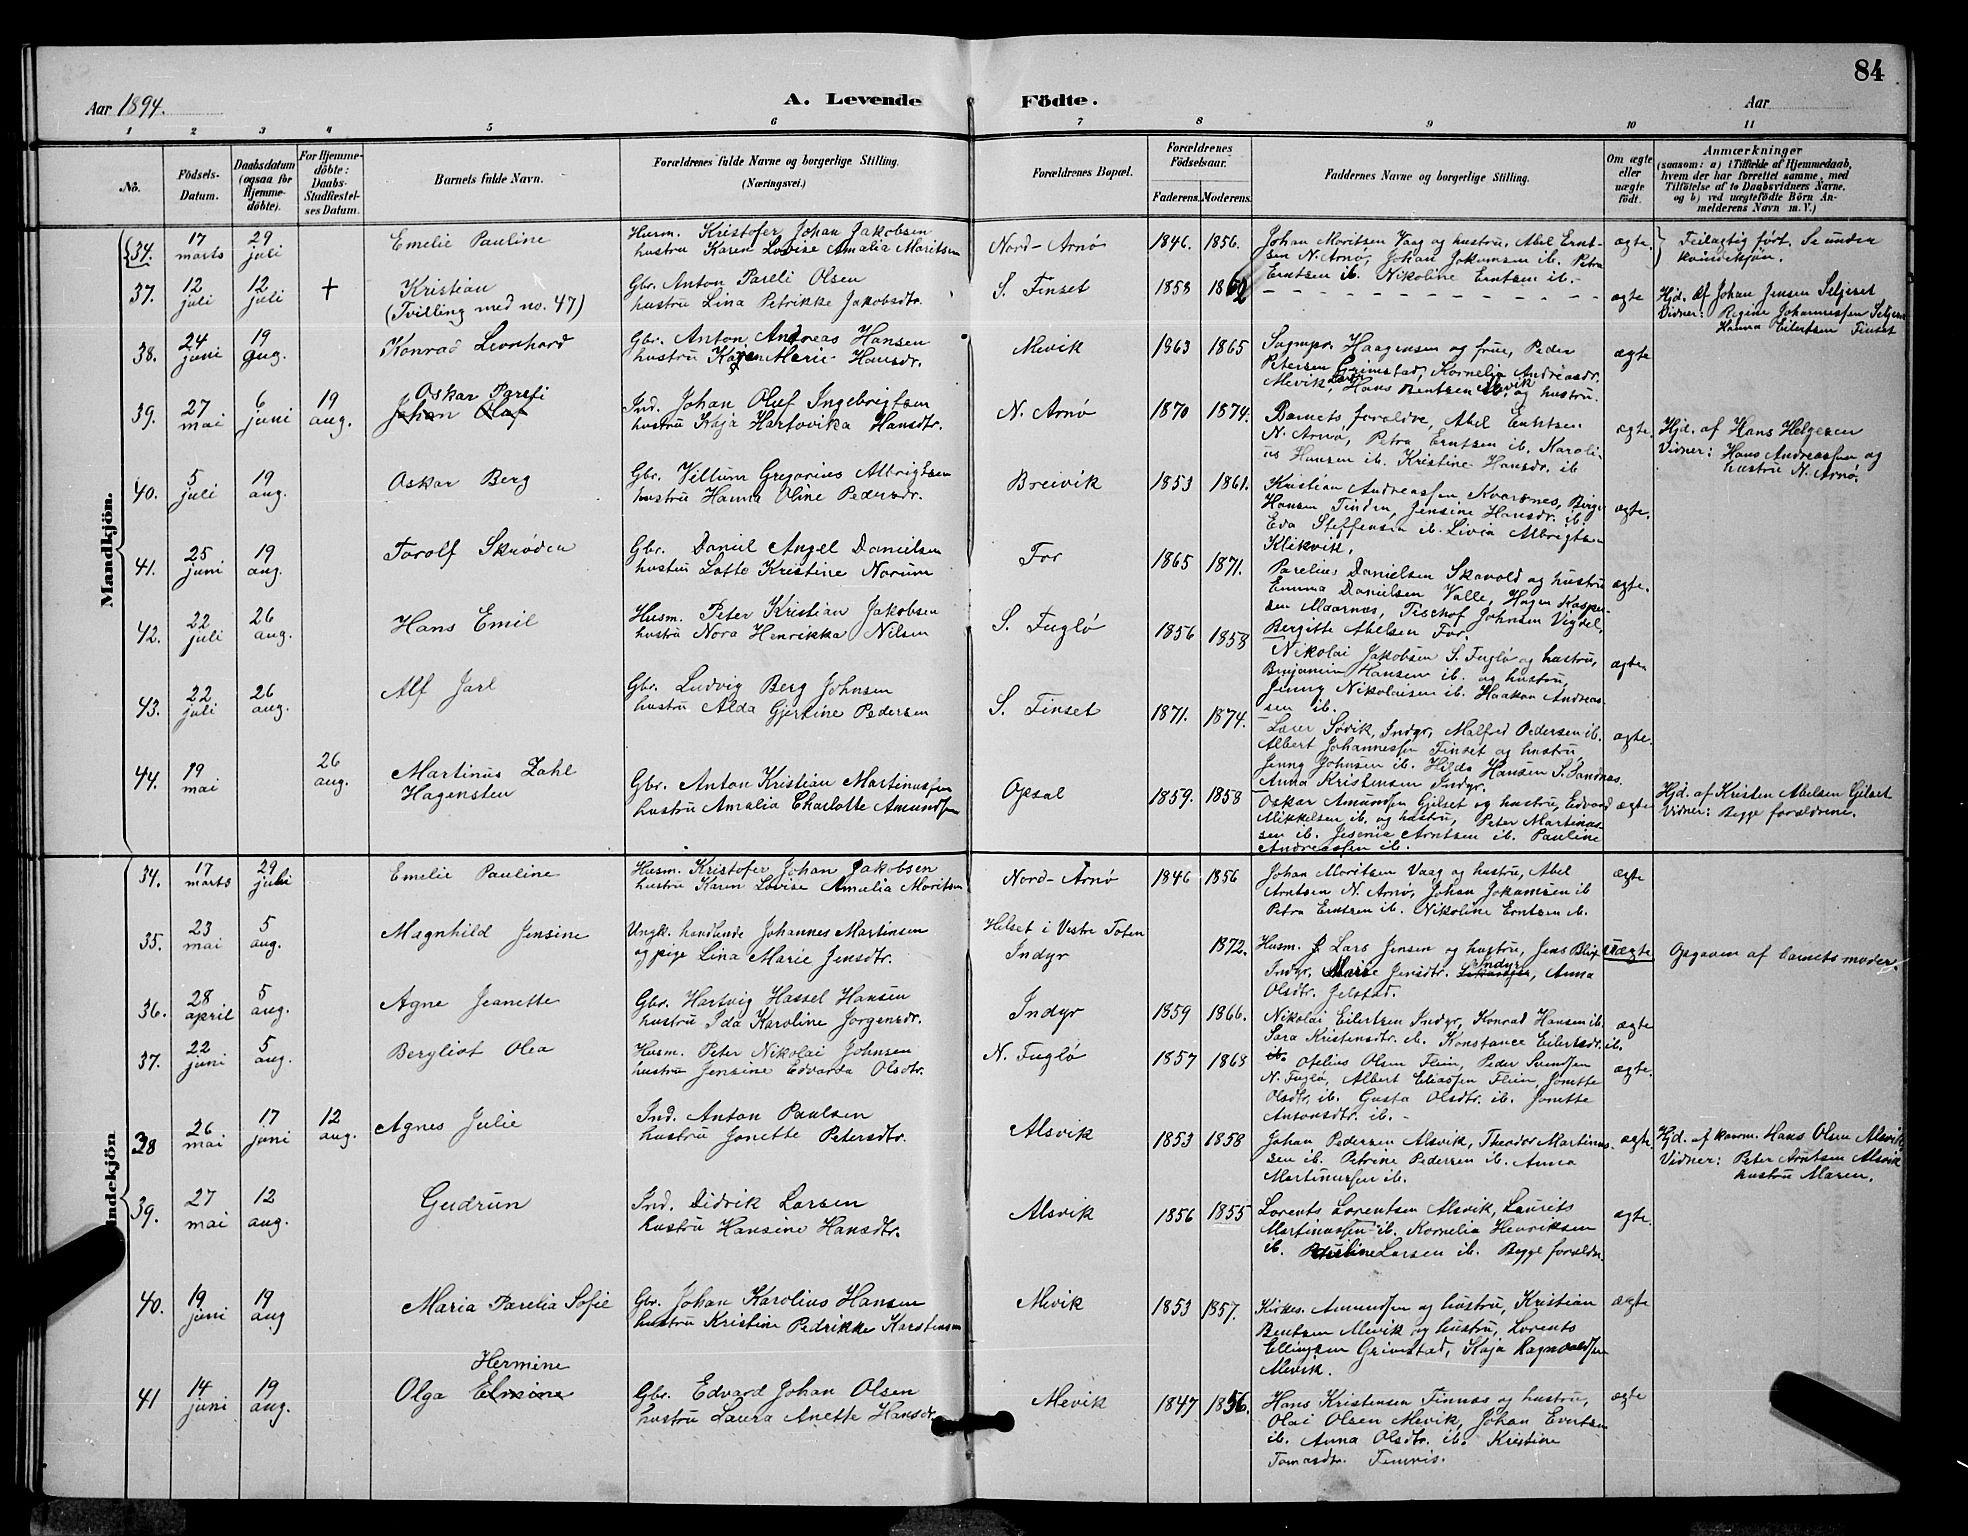 84
Aar 1894.
A. Levende Födte.
Aar
1 2 3 4 5 6 7 8 9 10 11
No.
Födsels-
Datum.
Daabsdatum
(ogsaa for
Hjemme-
döbte).
For Hjemme-
döbte:
Daabs-
Stadfæstel-
ses Datum.
Barnets fulde Navn.
Forældrenes fulde Navne og borgerlige Stilling.
(Næringsvei.)
Forældrenes Bopæl.
Forældrenes
Födselsaar.
Faderens. Moderens.
Faddernes Navne og borgerlige Stilling.
Om ægte
eller
uægte
födt.
Anmærkninger
(saasom: a) i Tilfælde af Hjemmedaab,
hvem der har forrettet samme, med
Tilföielse af to Daabsvidners Navne,
og b) ved uægtefödte Börn An-
melderens Navn m. V.)
Mandkjön.
34. 17 marts 29 juli Emelie Pauline
Husm. Kristofer Johan Jakobsen
hustru Karen Lovise Amalia Moritsen
Nord-Arnø 1846. 1856.
Johan Moritsen Vaag og hustru, Abel Ernt-
sen N. Arnø, Johan Jokumsen ib. Petra
Erntsen ib. Nikoline Erntsen ib.
ægte.
Feilagtig ført. Se under
kvindekjøn.
37. 12 juli 12 juli + Kristian
(Tvilling med no. 47)
Gbr. Anton Pareli Olsen
hustru Lina Petrikke Jakobsdtr.
S. Finset 1858 1862
ægte
Hjd. af Johan Jensen Seljeset
Vidner: Regine Johannessen Seljeset
Hanna Eilertsen Finset
38. 24 juni 19 aug. Konrad Leonhard
Gbr. Anton Andreas Hansen
hustru Karen Marie Hansdr.
Mevik 1863 1865
Sogmpr. Haagensen og frue, Peder
Petersen Grimstad, Kornelia Andreasdr.
Mevik, Hans Bentsen Mevik og hustru.
ægte
39. 27 mai 6 juni 19 aug. Oskar Parefi
Johan Olaf
Ind. Johan Oluf Ingebrigtsen
hustru Kaja Hartovika Hansdtr.
N. Arnø 1870 1874.
Barnets forældre, Abel Erntsen
N. Arnø, Petra Erntsen ib. Karoli-
us Hansen ib. Kristine Hansdr. ib
ægte.
Hjd. af Hans Helgesen
Vidner: Hans Andreassen og
hustru N. Arnø.
40. 5 juli 19 aug. Oskar Berg
Gbr. Villum Gregorius Albrigtsen
hustru Hanna Oline Pedersdr.
Breivik 1853 1861.
Kristian Andreassen Kvarsnes, Birger
Hansen Tinden, Jensine Hansdr. ib.
Eva Steffensen ib. Livia Albregtsen
Klikvik.
ægte.
41. 25 juni 19 aug. Torolf Skrøden
Gbr. Daniel Angel Danielsen
hustru Lotte Kristine Norum
For 1865 1871.
Parelius Danielsen Skavold og hustru
Emma Danielsen Valle, Hagen Kasper-
sen Maarnæs, Tischof Johnsen Vigdel,
Bergitte Abelsen For.
ægte.
42. 22 juli 26 aug. Hans Emil
Husm. Peter Kristian Jakobsen
hustru Nora Henrikka Nilsen
S. Fuglø 1856 1858
Nikolai Jakobsen S. Fuglø og hustru,
Benjamin Hansen ib. og hustru,
Jenny Nikolaisen ib. Haakon Andreas-
sen ib.
ægte
43. 22 juli 26 aug. Alf Jarl
Gbr. Ludvig Berg Johnsen
hustru Alda Gjertine Pedersen
S. Finset 1871. 1874.
Lærer Søvik, Indyr, Malfred Pedersen ib.
Albert Johannessen Finset og hustru,
Jenny Johnsen ib. Hilda Hansen S. Sandnæs.
Anna Kristensen Indyr.
ægte.
44. 19 mai 26 aug. Martinus Zahl
Hagensten
Gbr. Anton Kristian Martinussen
hustru Amalia Charlotte Amundsen
Opsal 1859. 1858
Oskar Amundsen Gilset og hustru, Edvard
Mikkelsen ib. og hustru, Peter Martinus-
sen ib. Jesenia Arntsen ib. Pauline
Andreassen ib.
ægte
Hjd. af Kristen Abelsen Gilset
Vidner: Begge forældrene.
indekjön
34. 17 marts 29 juli Emelie Pauline
Husm. Kristofer Johan Jakobsen
hustru Karen Lovise Amalia Moritsen
Nord-Arnø 1846 1856
Johan Moritsen Vaag og hustru, Abel
Arntsen N. Arnø, Johan Jokumsen ib
Petra Erntsen ib. Nikoline Erntsen ib.
ægte
35. 23 mai 5 aug. Magnhild Jensine
Ungk. handlende Johannes Martinsen
og pige Lina Marie Jensdtr.
Helset i Vestre Toten
Indyr
1872.
Husm. Lars Jensen og hustru, Jens Blix
Indyr, Marie Jensdtr. Indyr, Anna
Olsdtr. Jelstad.
Uægte
Opgaven af barnets moder.
36. 28 april 5 aug. Agne Jeanette
Gbr. Hartvig Hassel Hansen
hustru Ida Karoline Jorgensdr.
Indyr 1859 1866.
Nikolai Eilertsen Indyr, Konrad Hansen ib.
Sara Kristensdtr. ib. Konstance Eilertsdtr. ib.
ægte
37. 22 juni 5 aug. Bergliot Olea
Husm. Peter Nikolai Johnsen
hustru Jensine Edvarda Olsdtr.
N. Fuglø 1857 1868
Ofelius Olsen Flein, Peder Svendsen
N. Fuglø, Albert Eliassen Flein, Jonette
Olsdtr. ib. Gusta Olsdtr. ib. Jonette
Antonsdtr. ib.
ægte.
38 26 mai 17 juni 12 aug. Agnes Julie
Ind. Anton Paulsen
hustru Jonette Petersdtr.
Alsvik 1853 1858
Johan Pedersen Alsvik, Theodor Martinus-
sen ib. Petrine Pedersen ib. Anna
Martinussen ib.
ægte.
Hjd. af konm. Hans Olsen Alsvik
Vidner: Peter Arntsen Alsvik
hustru Maren.
39. 27 mai 12 aug. Gudrun
Ind. Didrik Larsen
hustru Hansine Hansdtr.
Alsvik 1856 1855
Lorents Lorentsen Alsvik, Laurits
Martinussen ib. Kornelia Henriksen
ib. Pauline Larsen ib. Begge forældre.
ægte.
40. 19 juni 19 aug Maria Parelia Sofie
Gbr. Johan Karolius Hansen
hustru Kristine Pedrikke Karstensen
Mevik 1853 1857.
Kirkes. Amundsen og hustru, Kristian
Bentsen Mevik og hustru, Lorents
Ellingsen Grimstad, Kaja Ragnvaldsen
Mevik.
ægte
41 14 juni 19 aug. Hermine
Olga Elmine
Gbr. Edvard Johan Olsen
hustru Laura Anette Hansdr.
Mevik 1847 1856.
Hans Kristensen Finnæs og hustru,
Olai Olsen Mevik, Johan Evertsen
ib. Anna Olsdtr. ib. Kristine
Tomasdtr.
ægte